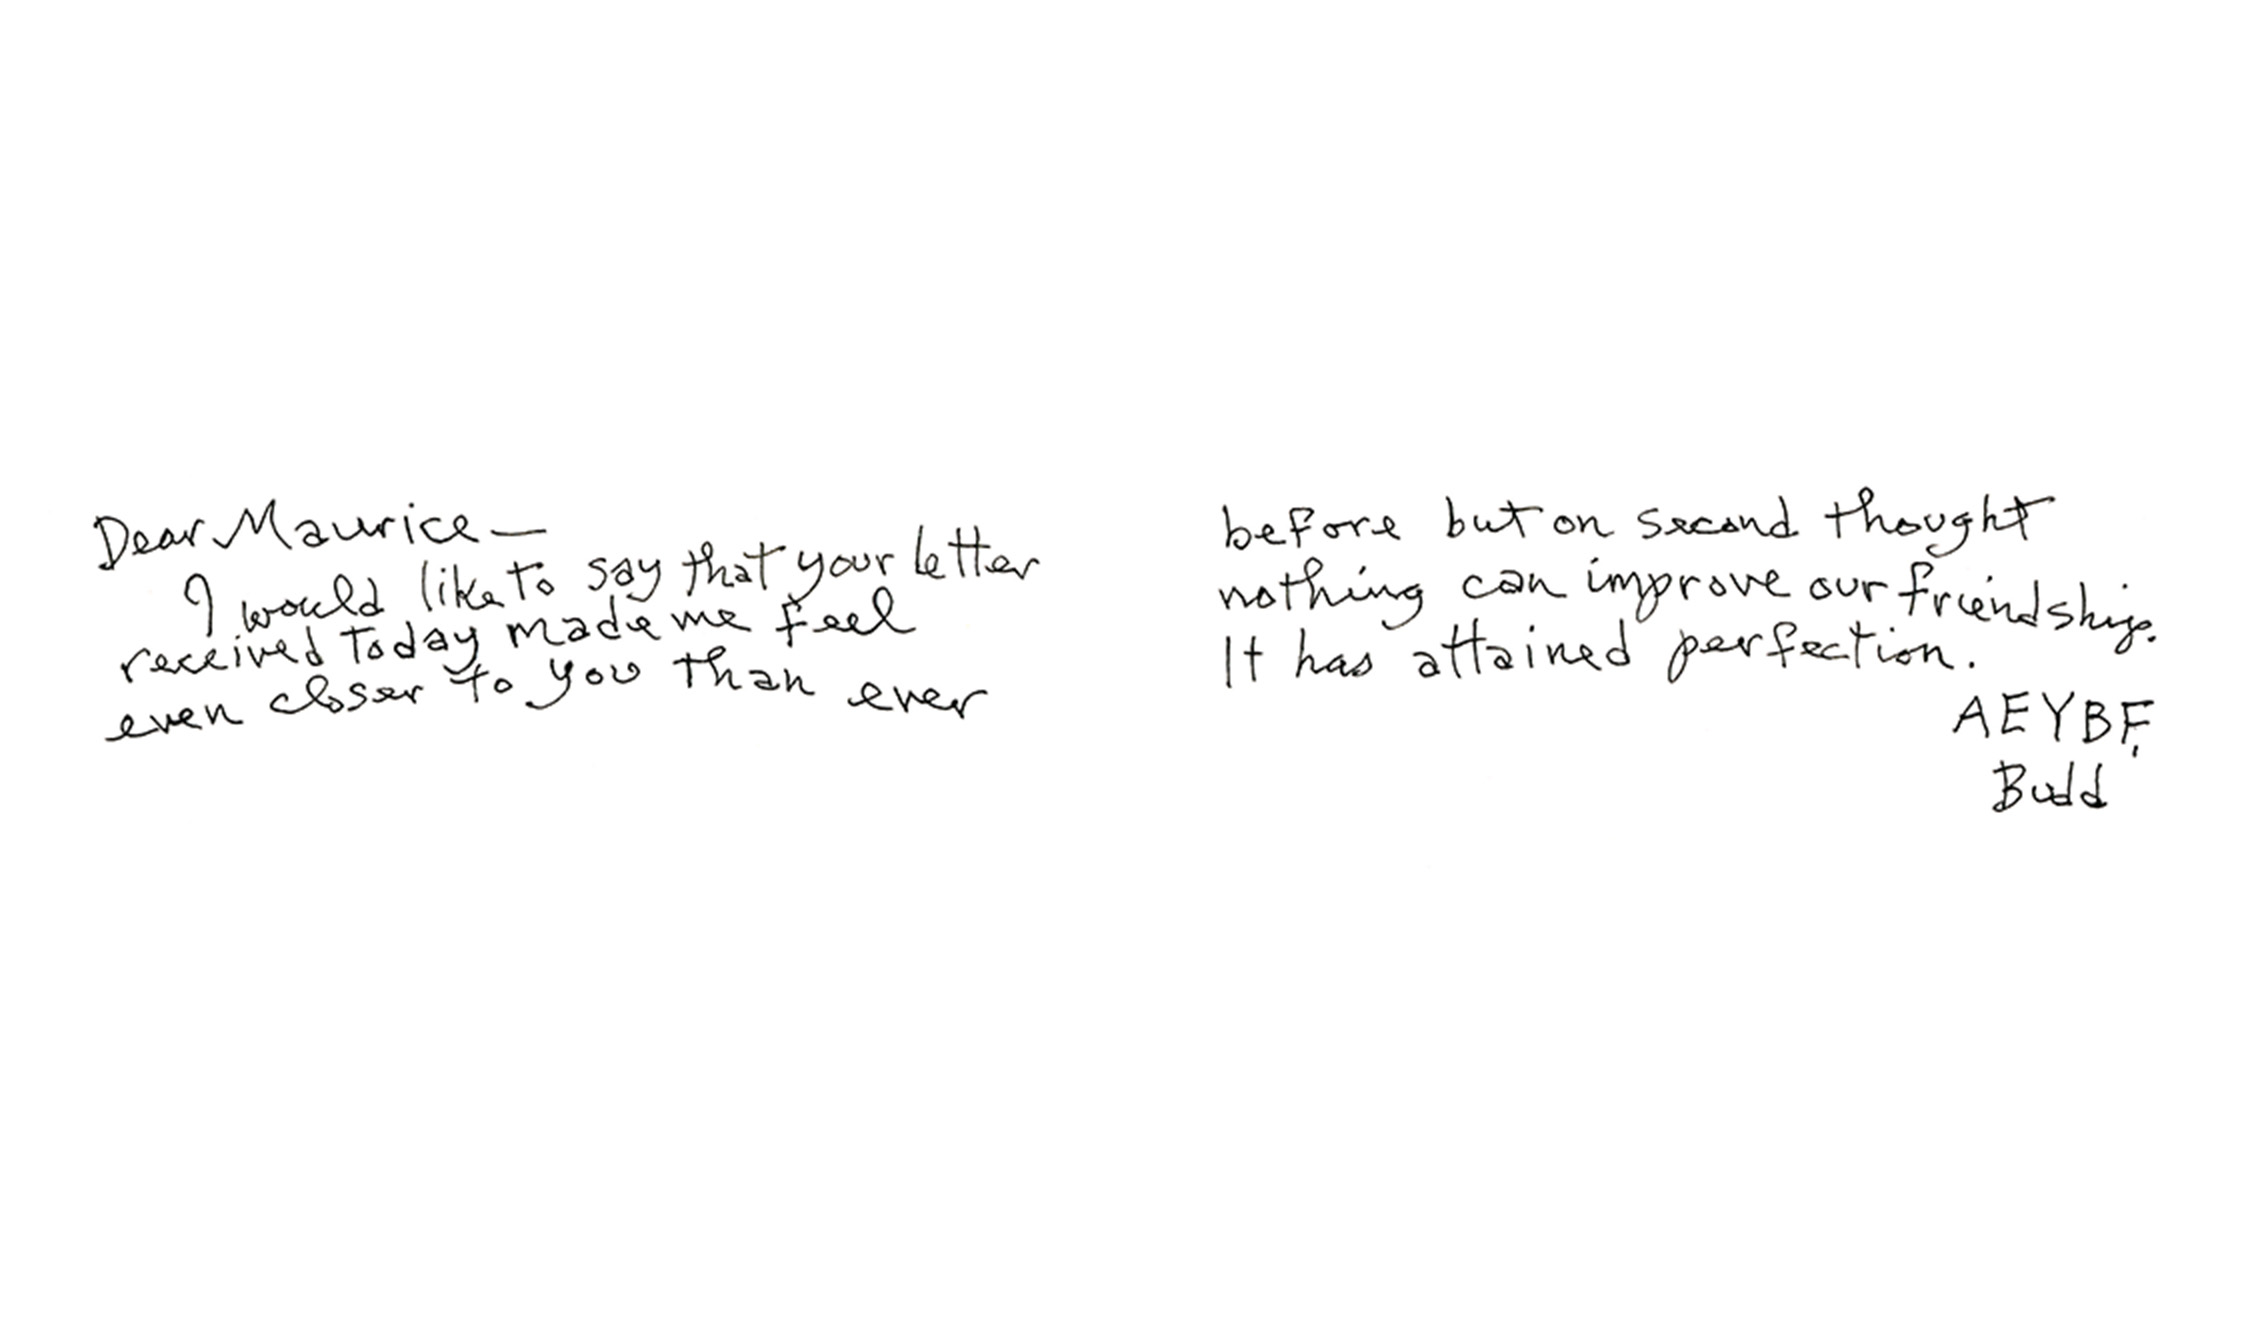 Dear Maurice—
I would like to say that your letter
received today made me feel
even closer to you than ever
before but on second thought
nothing can improve our friendship.
It has attained perfection.
AEYBF,
Budd